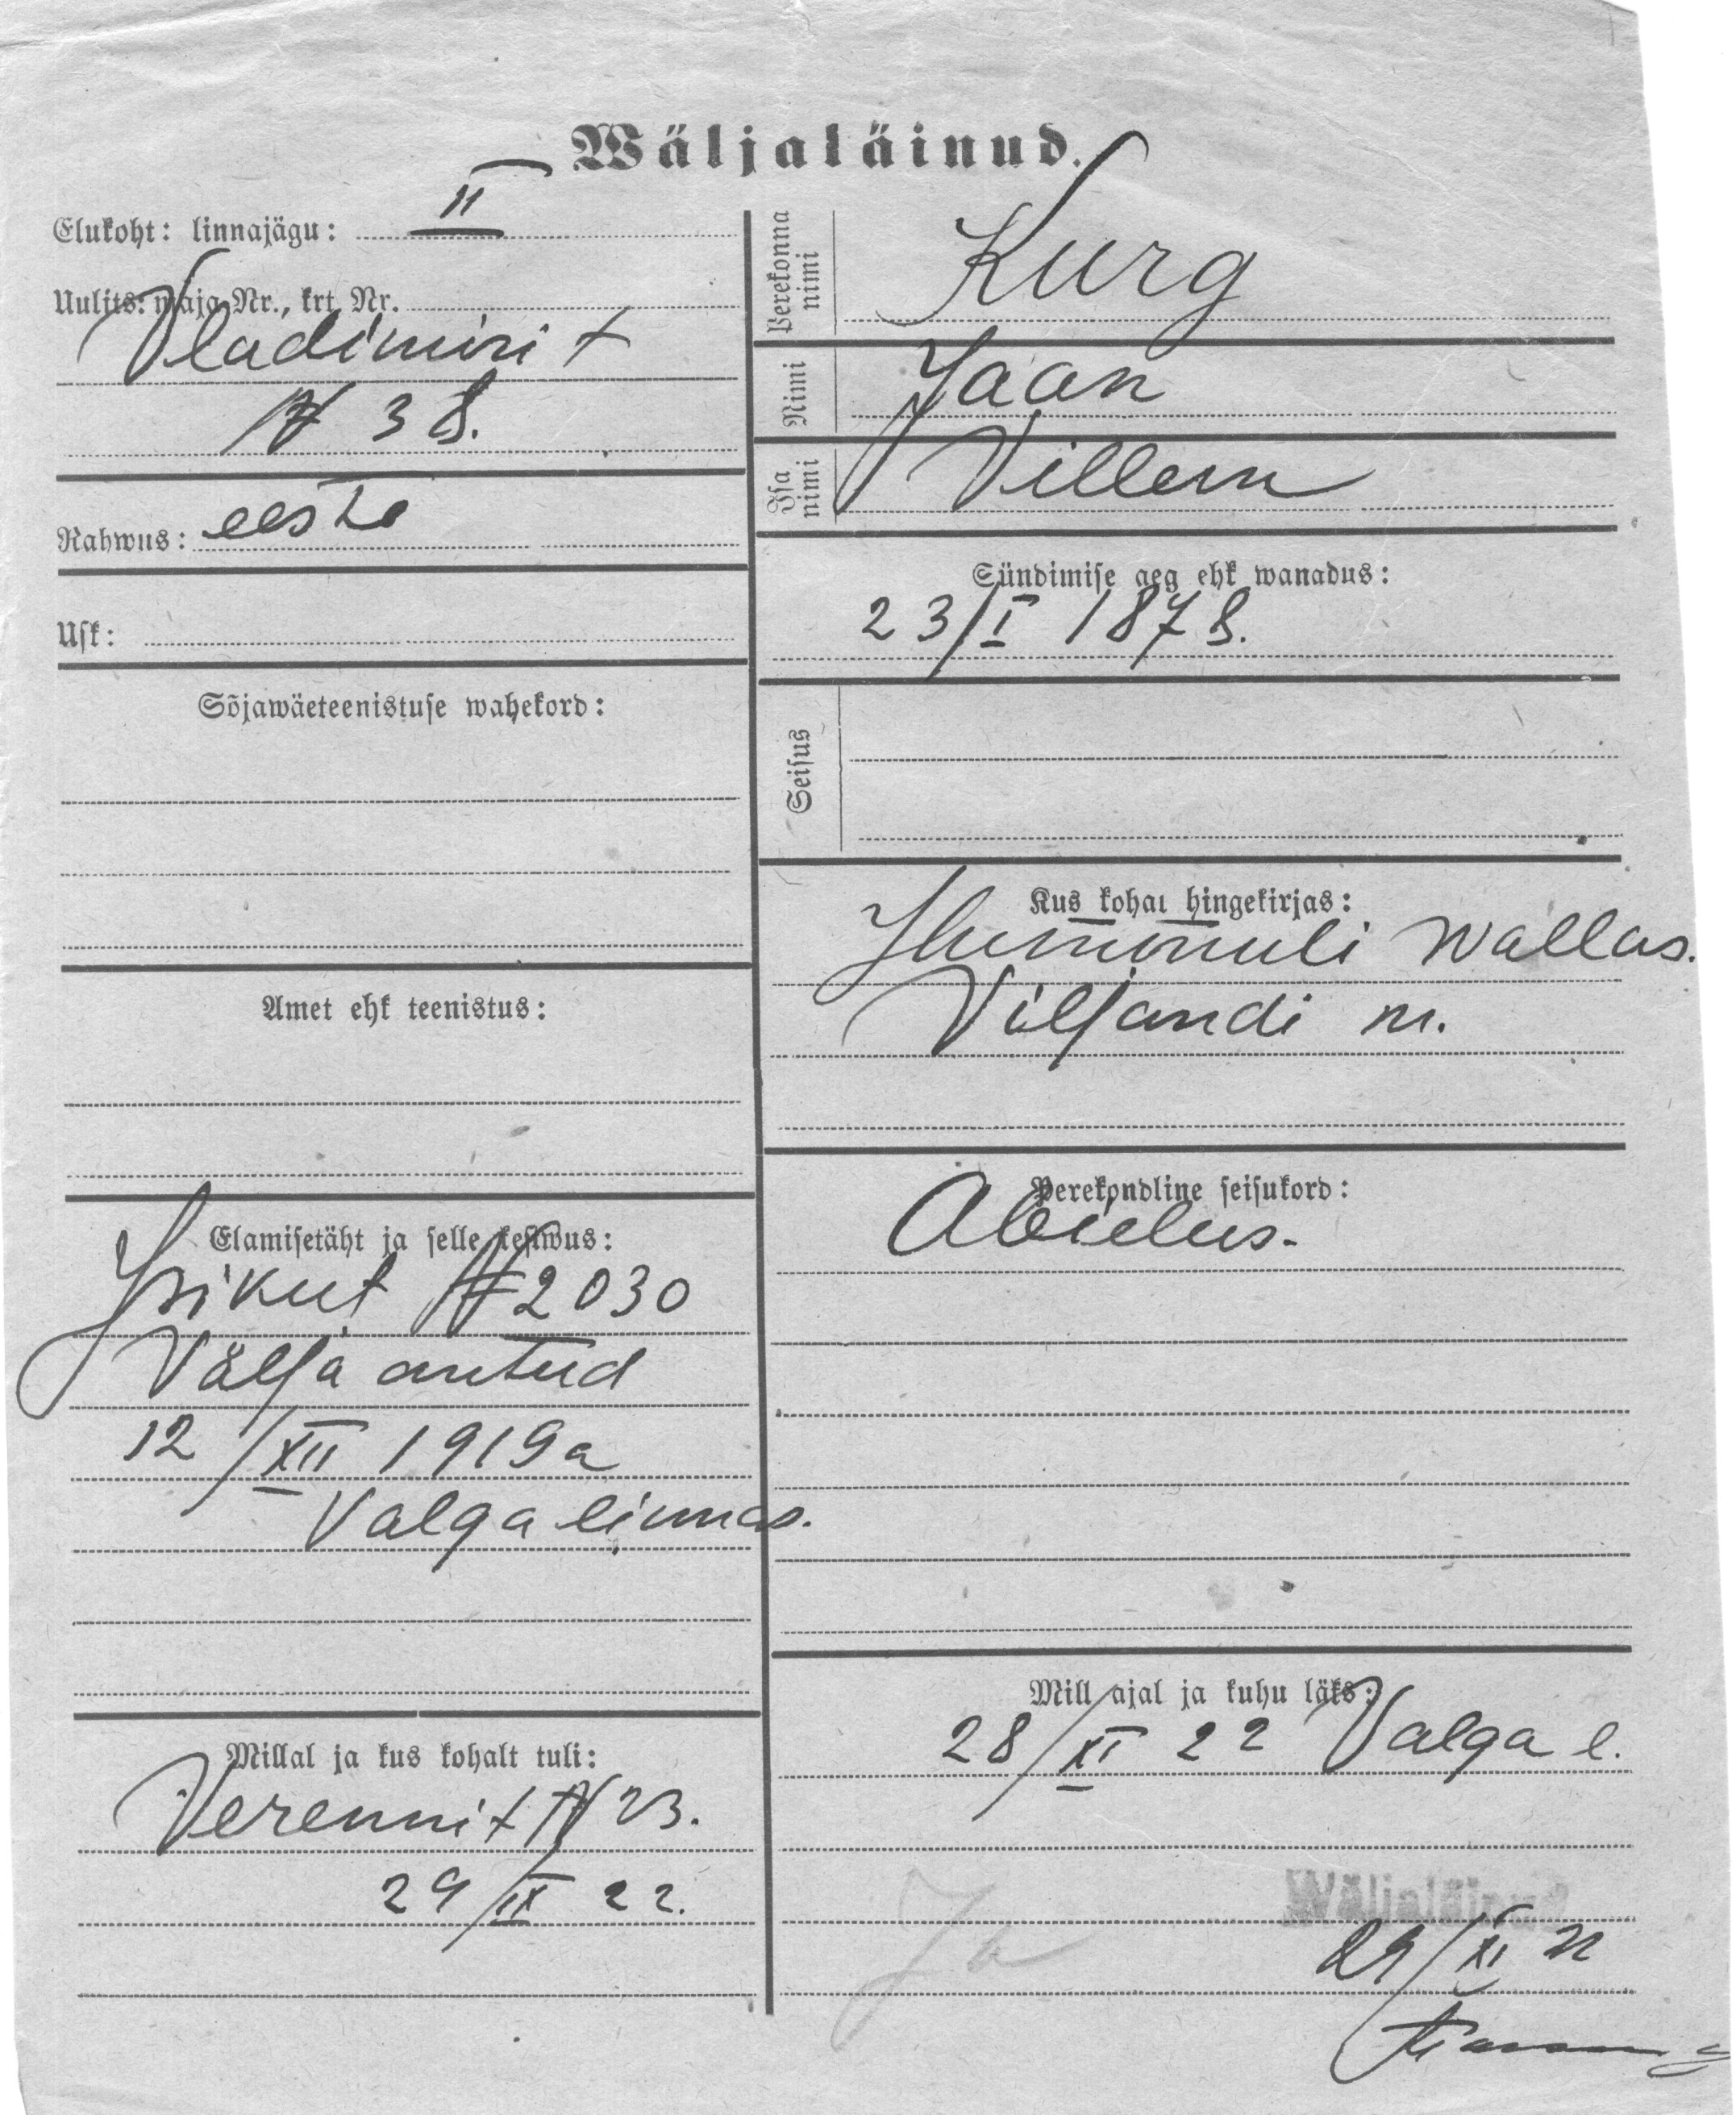 Wäljaläinud.
Elukoht: linnajägu: II
Uulits: maja Nr., krt. Nr.
Vladimiri t
№ 38.
Rahwus: eesti
Usk:
Sõjawäeteenistuse wahekord:
Amet ehk teenistus:
Elamisetäht ja selle kestwus:
Isikut № 2030
Välja antud
12/XII 1919a
Valga linnas.
Millal ja kus kohalt tuli:
Verenni t № 23.
29/IX 22.
Perekonna nimi
Kurg
Nimi
Jaan
Isa nimi
Villem
Sündimise aeg ehk wanadus:
23/I 1878.
Seisus
Kus kohal hingekirjas:
Hummuli wallas.
Viljandi m.
Perekondline seisukord:
Abielus.
Mill ajal ja kuhu läks:
28/XI 22 Valga l.
Wäljaläinud
29/XI 22
Ja